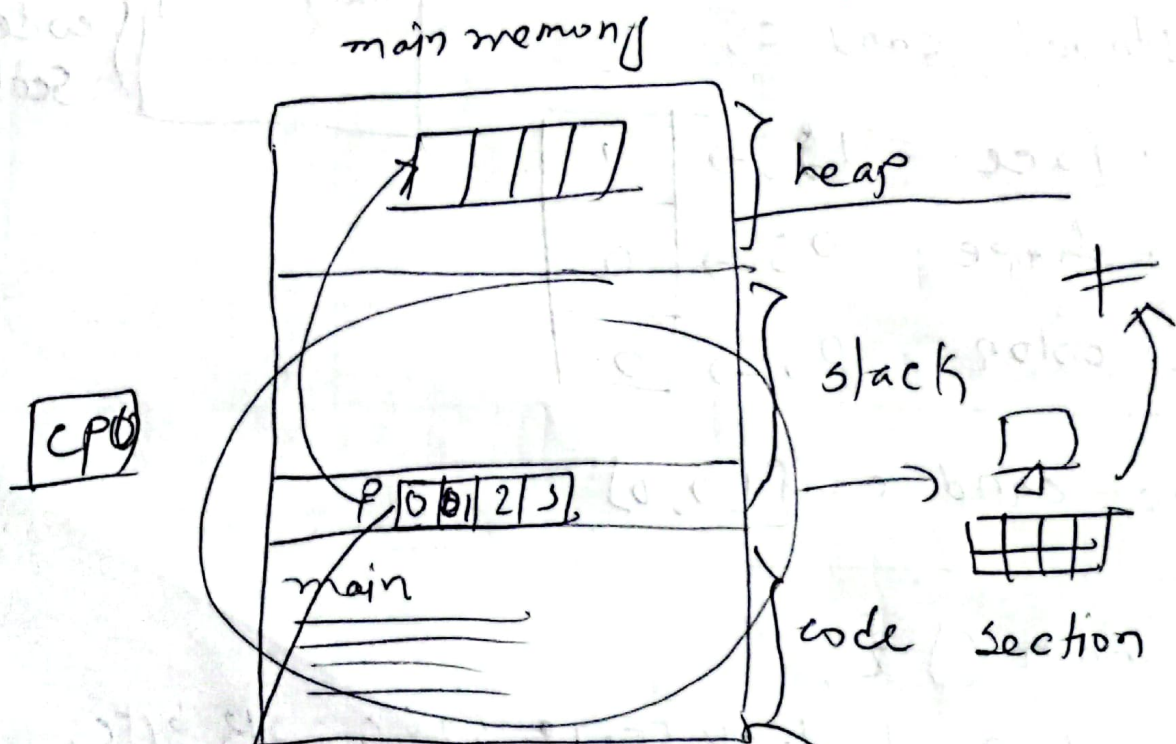 main memory
heap
stack
CPU
P 0 01 2 3
main
code section